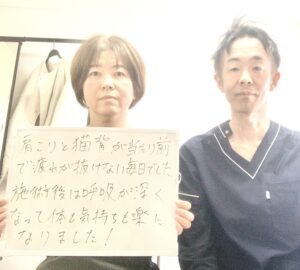 肩こりと猫背が当たり前
で疲れが抜けない毎日でした
施術後は呼吸が深く
なって体も気持ちも楽に
なりました!